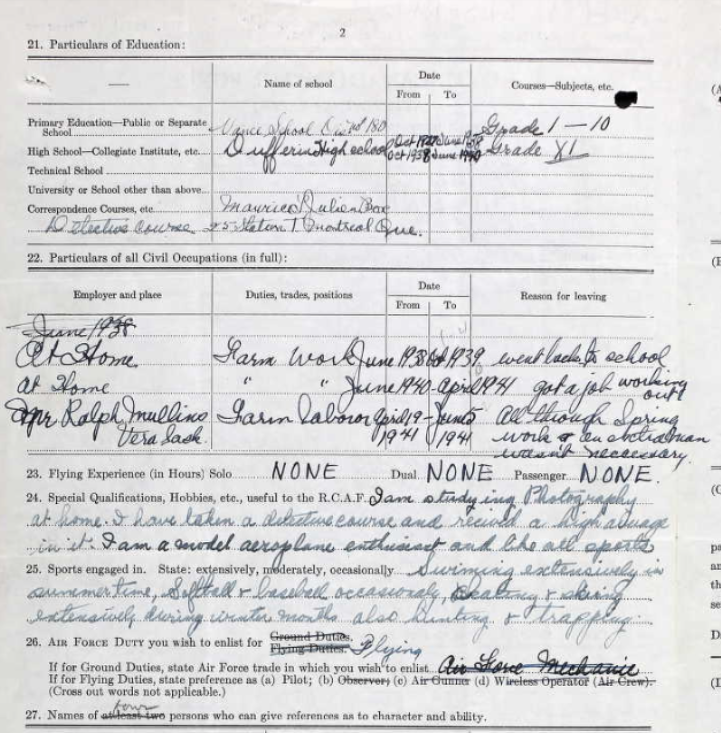 2
21. Particulars of Education:
Name of school
Date
From To
Courses—Subjects, etc.
Primary Education—Public or Separate School
Vance School 180
Grade 1 — 10
High School—Collegiate Institute, etc.
Dufferin High school
Oct 1938 June 1940
Grade XI
Technical School
University or School other than above
Correspondence Courses, etc.
Maurice Julien Box
Detective course 25 Station T. Montreal Que.
22. Particulars of all Civil Occupations (in full):
Employer and place
Duties, trades, positions
Date
From To
Reason for leaving
June 1938
At Home. Farm Work June 1938 1939 went back to school
at Home " " June 1940 - April 1941 got a job working out
Mr Ralph Mullins Farm laborer April 19 - June 5 All through Spring
Vera Sask. 1941 1941 work & an extra man
wasn't neccessary.
23. Flying Experience (in Hours) Solo NONE Dual NONE Passenger NONE.
24. Special Qualifications, Hobbies, etc., useful to the R.C.A.F. I am studying Photography
at home. I have taken a detective course and recived a high average
in it. I am a model aeroplane enthusiast and like all sports
25. Sports engaged in. State: extensively, moderately, occasionally Swiming extensively in
summertime, Softball & baseball occasionaly, Skating & skiing
extensively during winter months also hunting & trapping.
26. AIR FORCE DUTY you wish to enlist for Ground Duties. Flying
Flying Duties.
If for Ground Duties, state Air Force trade in which you wish to enlist Air Force Mechanic
If for Flying Duties, state preference as (a) Pilot; (b) Observer; (c) Air Gunner (d) Wireless Operator (Air Crew).
(Cross out words not applicable.)
27. Names of at least two four persons who can give references as to character and ability.